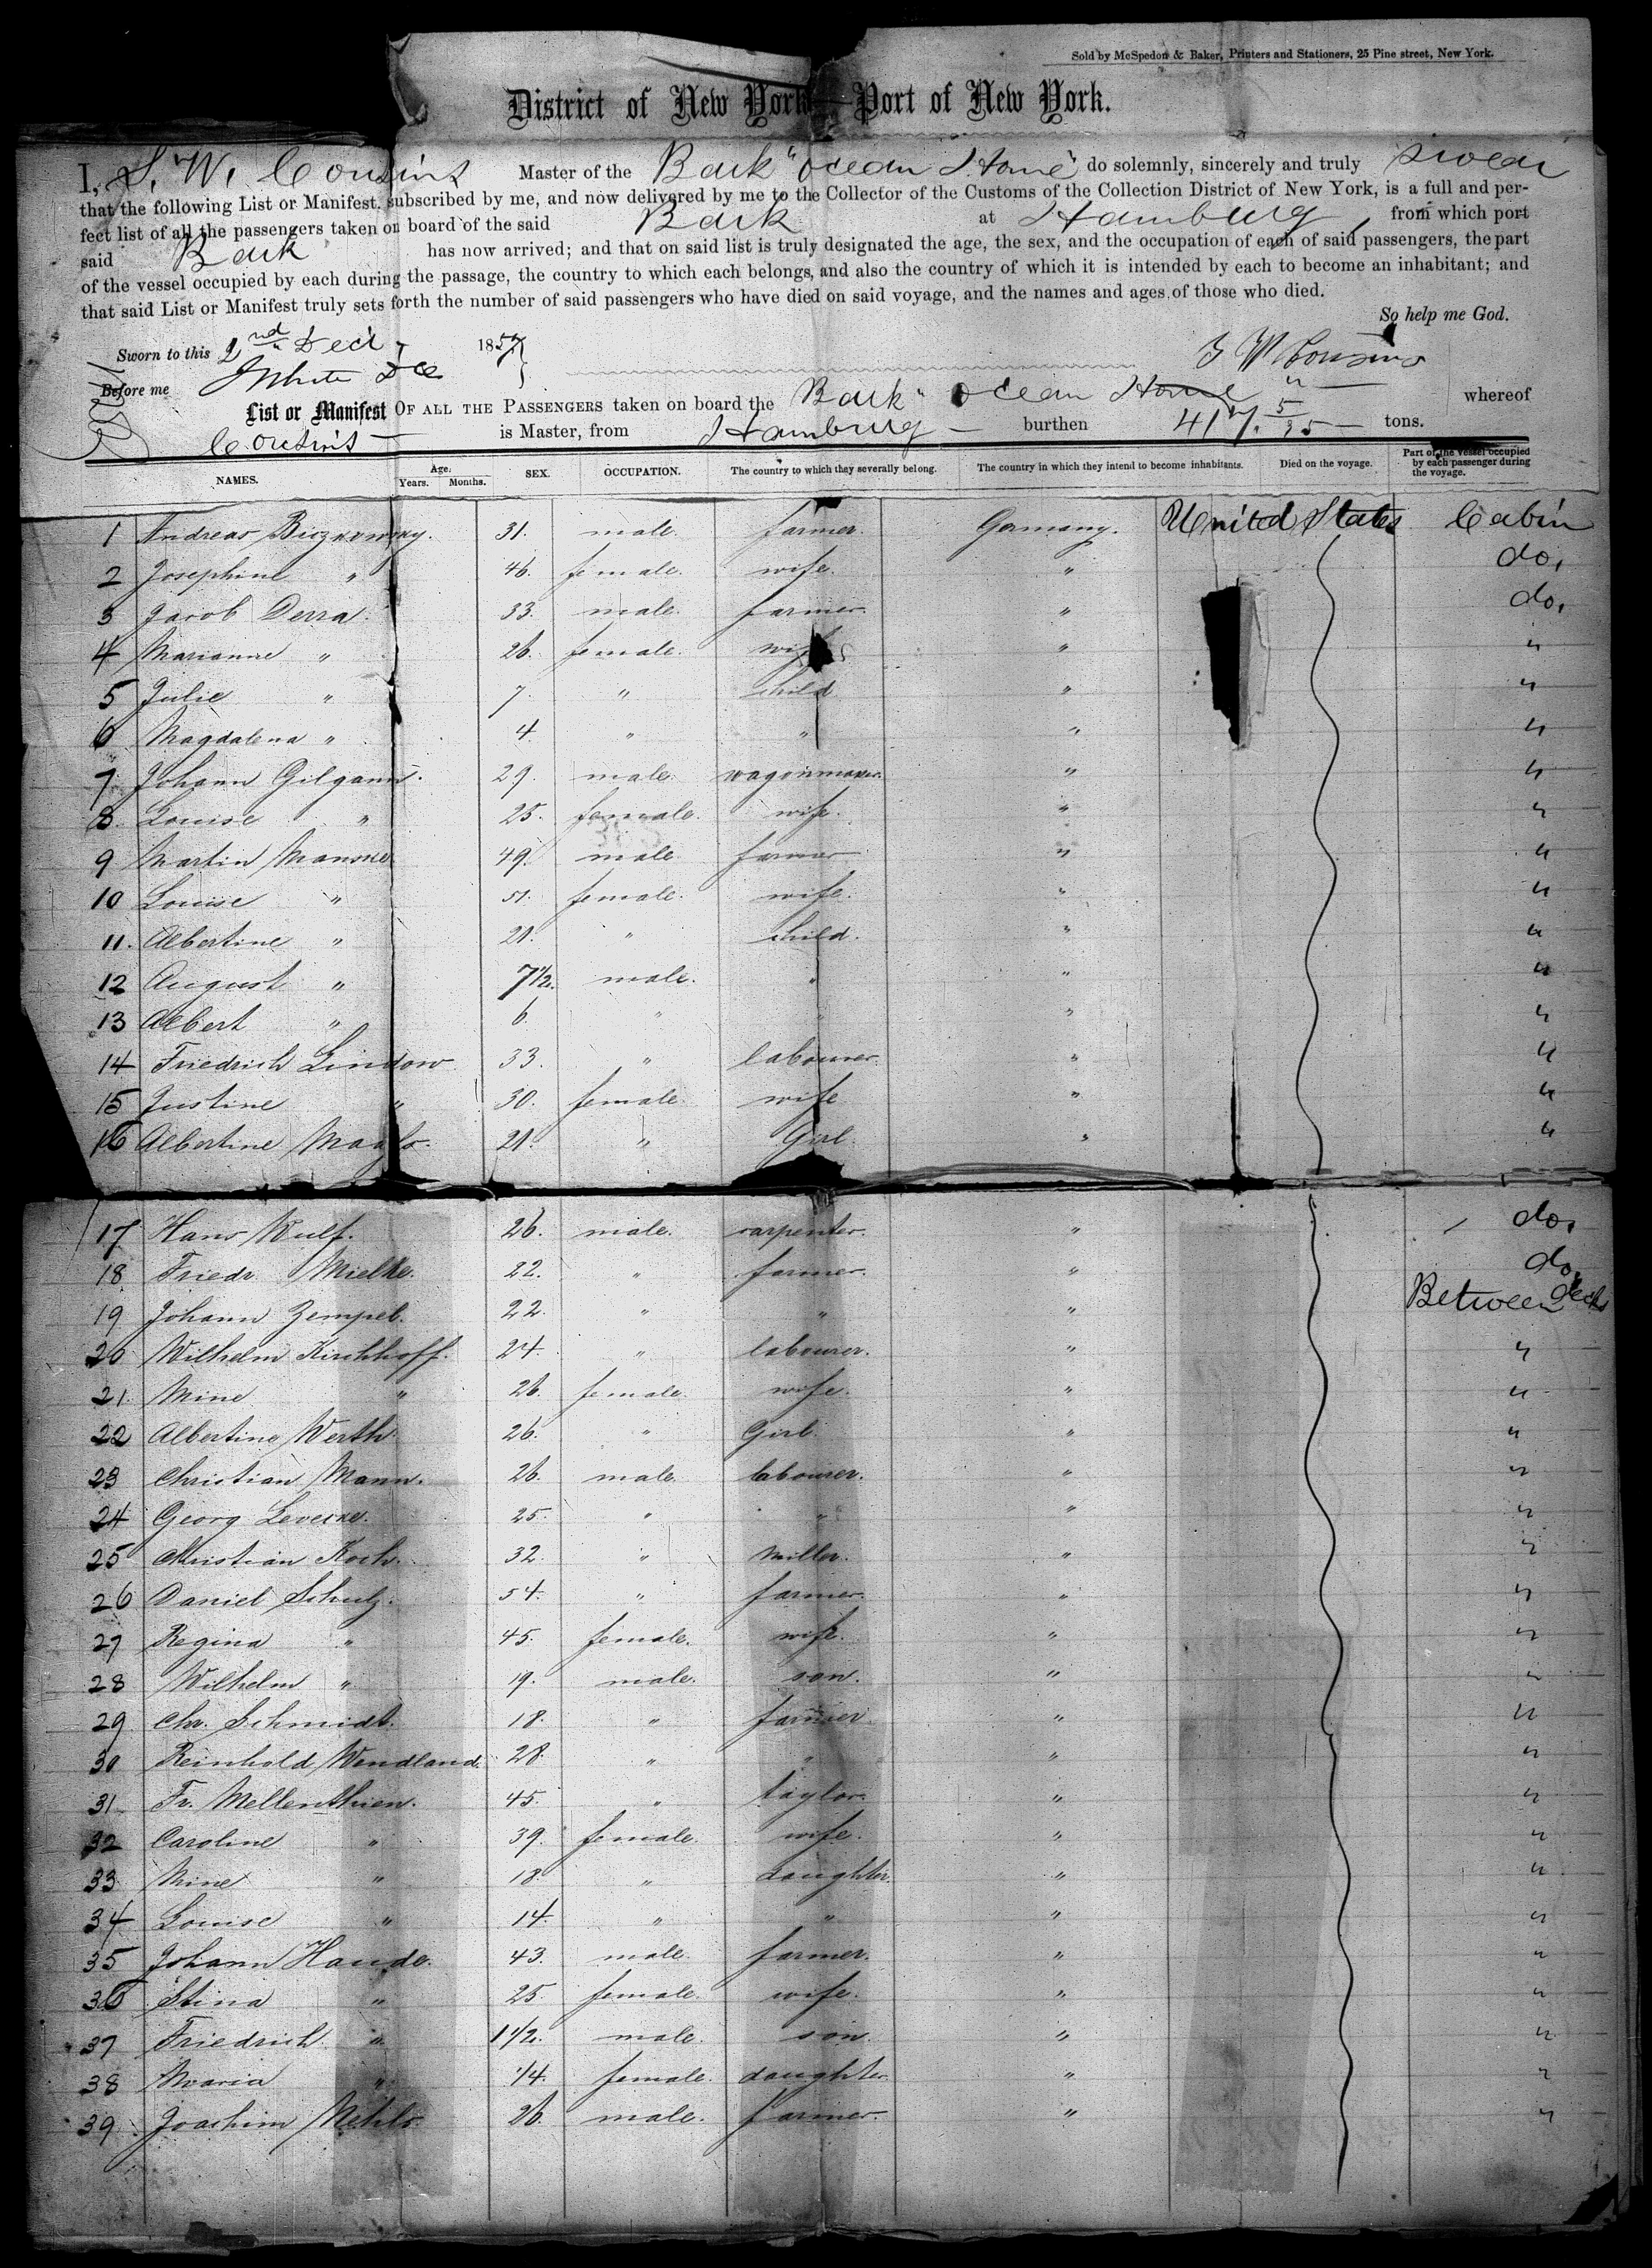 Sold by McSpedon & Baker, Printers and Stationers, 25 Pine street, New York.
District of New York—Port of New York.
I, S. W. Cousins Master of the Bark "Ocean Home" do solemnly, sincerely and truly swear
that the following List or Manifest, subscribed by me, and now delivered by me to the Collector of the Customs of the Collection District of New York, is a full and per-
fect list of all the passengers taken on board of the said Bark at Hamburg, from which port
said Bark has now arrived; and that on said list is truly designated the age, the sex, and the occupation of each of said passengers, the part
of the vessel occupied by each during the passage, the country to which each belongs, and also the country of which it is intended by each to become an inhabitant; and
that said List or Manifest truly sets forth the number of said passengers who have died on said voyage, and the names and ages of those who died.
So help me God.
Sworn to this 2nd Decr 1857 S W Cousins
Before me
List or Manifest OF ALL THE PASSENGERS taken on board the Bark "Ocean Home" whereof
Cousins is Master, from Hamburg burthen 417. 5/95 tons.
NAMES. Age. Years. Months. SEX. OCCUPATION. The country to which they severally belong. The country in which they intend to become inhabitants. Died on the voyage. Part of the vessel occupied by each passenger during the voyage.
1 Andreas 31. male. farmer. Germany. United States Cabin
2 Josephine " 46. female. wife. " do.
3 Jacob Derra. 33. male. farmer. " do.
4 Marianne " 26. female. wife " "
5 Julie " 7. " child " "
6 Magdalena " 4. " " " "
7. Johann Gilgann. 29. male. wagonmaker. " "
8. Louise " 25. female. wife. " "
9 Martin Manske 49. male farmer " "
10 Louise " 51. female. wife. " "
11. Albertine " 21. " child. " "
12 August " 7 1/2. male. " " "
13 Albert " 6. " " " "
14 Friedrich Lindow 33. " labourer. " "
15 Justine " 30. female. wife " "
16 Albertine 21. " Girl. " "
17. Hans Wulf. 26. male. carpenter. " do.
18 Friedr Mielke. 22. " farmer. " do.
19 Johann Zempel. 22. " " " Between decks
20 Wilhelm Kirchhoff. 24. " labourer. " "
21. Mine " 26. female. wife. " "
22 Albertine Werth. 26. " Girl. " "
23 Christian Mann. 26. male. labourer. " "
24 Georg Levecke. 25. " " " "
25 Christian Koch. 32. " Miller. " "
26 Daniel Schulz. 54. " farmer. " "
27 Regina " 45. female. wife. " "
28 Wilhelm " 19. male. son. " "
29 Chr. Schmidt. 18. " farmer. " "
30 Reinhold Wendland. 28. " " " "
31 Fr. Mellenthien. 45. " taylor. " "
32 Caroline " 39. female. wife. " "
33 Mine " 18. " daughter. " "
34 Louise " 14. " " " "
35 Johann Haude. 43. male. farmer. " "
36 Stina " 25. female. wife. " "
37 Friedrich " 1 1/2. male. son. " "
38 Maria " 1/4. female. daughter " "
39 Joachim 26. male. farmer. " "